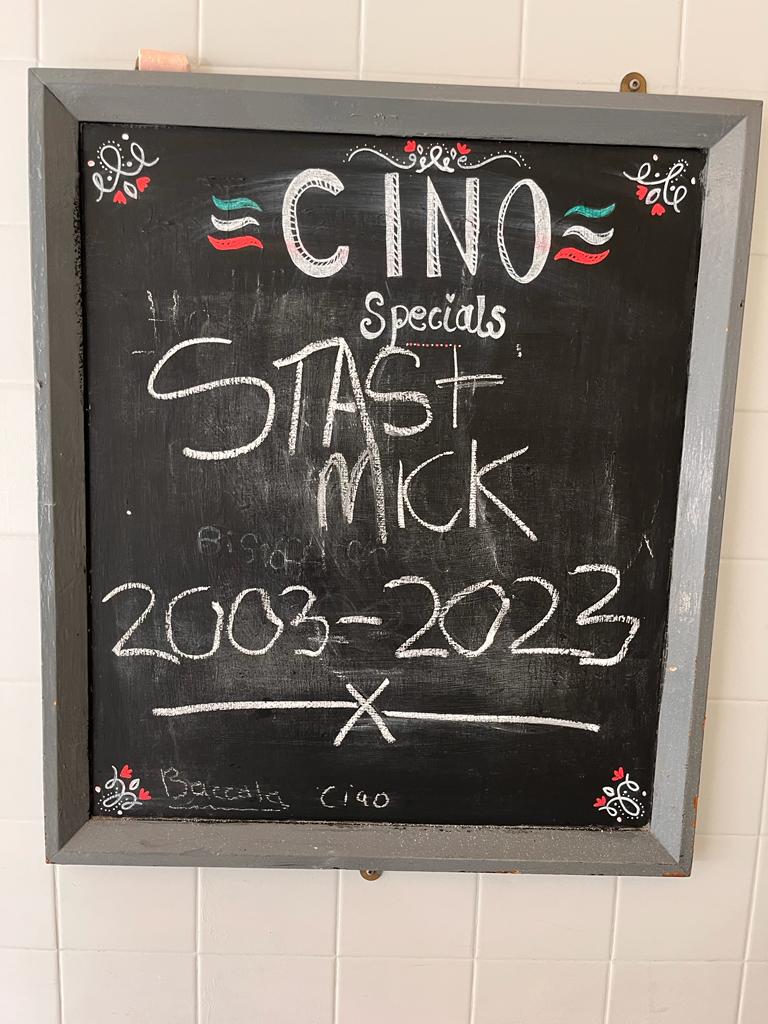 CINO
Specials
STAS +
MICK
2003-2023
X
Baccala Ciao